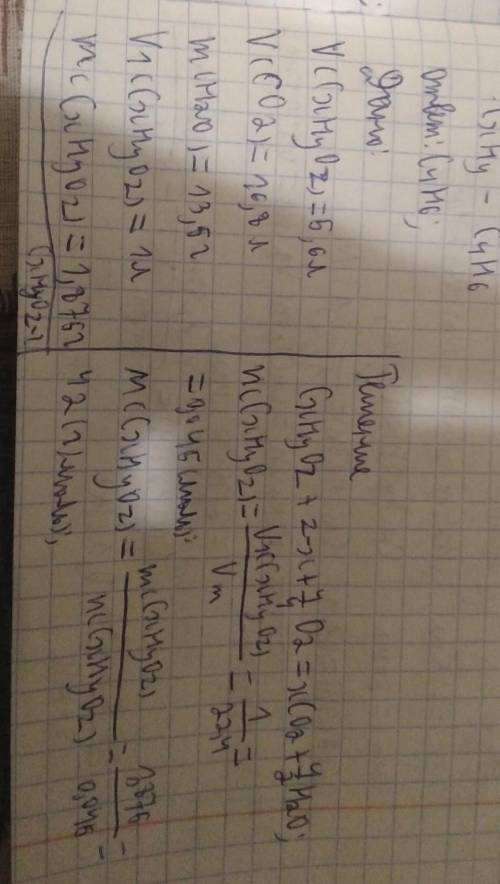 CxHy - C4H6
ответ: C4H6;
Дано:
V(CxHyOz) = 5,6л
V(CO2) = 16,8л
m(H2O) = 13,5г
V1(CxHyOz) = 1л
m(CxHyOz) = 1,875г
CxHyOz-?
Решение
CxHyOz + z-x+y/4 O2 = xCO2 + y/2 H2O;
n(CxHyOz) = V1(CxHyOz) / Vm = 1 / 22,4 =
= 0,045(моль);
M(CxHyOz) = m(CxHyOz) / n(CxHyOz) = 1,875 / 0,045 =
42(г/моль);